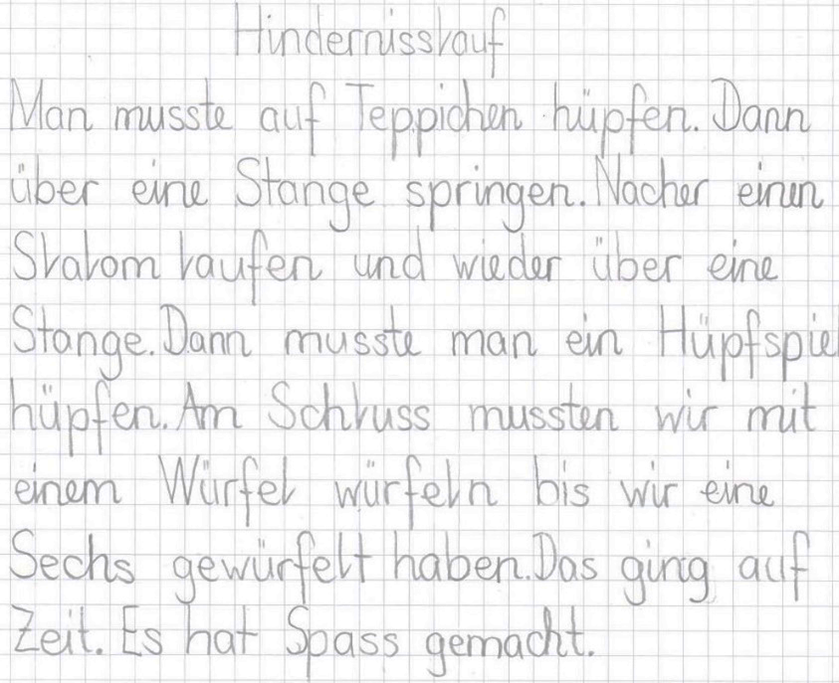 Hindernisslauf
Man musste auf Teppichen hüpfen. Dann
über eine Stange springen. Nacher einen
Slalom laufen und wieder über eine
Stange. Dann musste man ein Hüpfspiel
hüpfen. Am Schluss mussten wir mit
einem Würfel würfeln bis wir eine
Sechs gewürfelt haben. Das ging auf
Zeit. Es hat Spass gemacht.